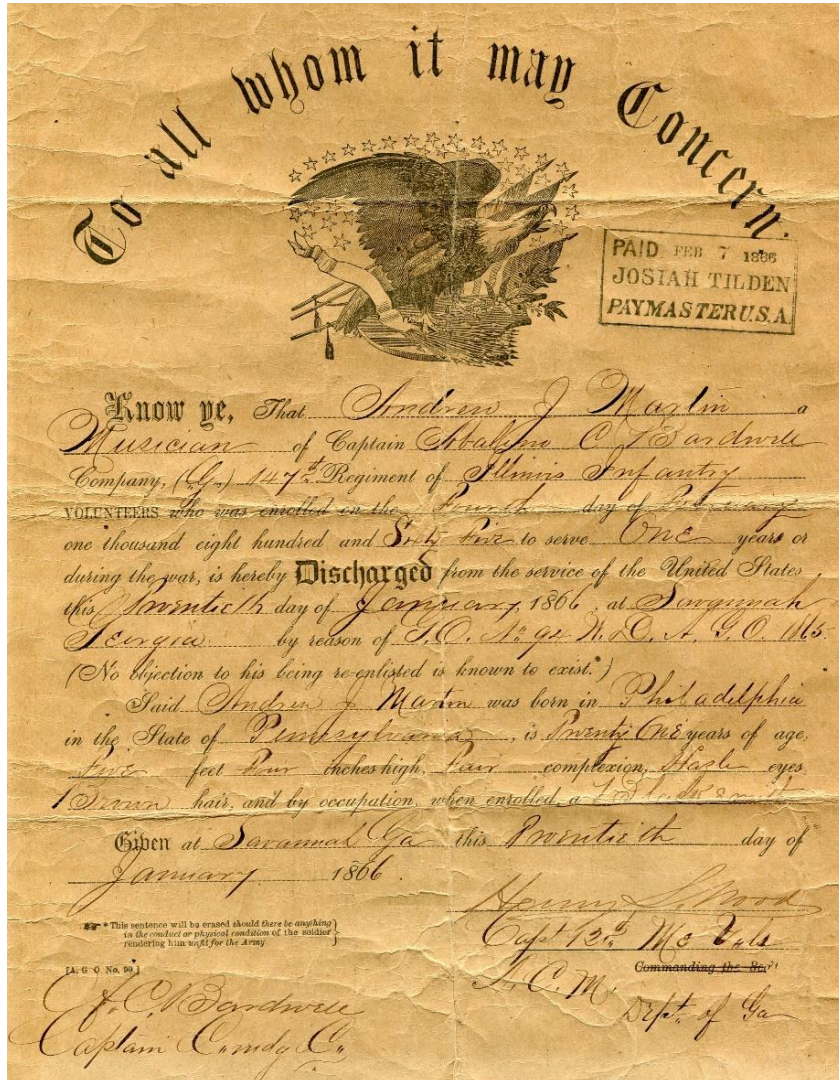 To all whom it may Concern.
PAID FEB 7 1866
JOSIAH TILDEN
PAYMASTER U.S.A.
Know ye, That Andrew J Martin a
Musician of Captain C Bardwell
Company, (G,) 147th Regiment of Illinois Infantry
VOLUNTEERS who was enrolled on the Fourth day of February
one thousand eight hundred and Sixty Five to serve One years or
during the war, is hereby Discharged from the service of the United States
this Twentieth day of January, 1866, at Savannah
Georgia by reason of G.O. No 92 W.D. A.G.O. 1865
(No objection to his being re-enlisted is known to exist.*)
Said Andrew J Martin was born in Philadelphia
in the State of Pennsylvania, is Twenty One years of age,
Five feet Four inches high, Fair complexion, Hazle eyes,
Brown hair, and by occupation, when enrolled, a Blacksmith
Given at Savannah Ga this Twentieth day of
January 1866.
Henry S Wood
Capt 12th Me Vols
Commanding the Reg't
A.C.M.
Dept. of Ga
* This sentence will be erased should there be anything
in the conduct or physical condition of the soldier
rendering him unfit for the Army
[A. G. O. No. 99.]
A. C. Bardwell
Captain Comdg Co